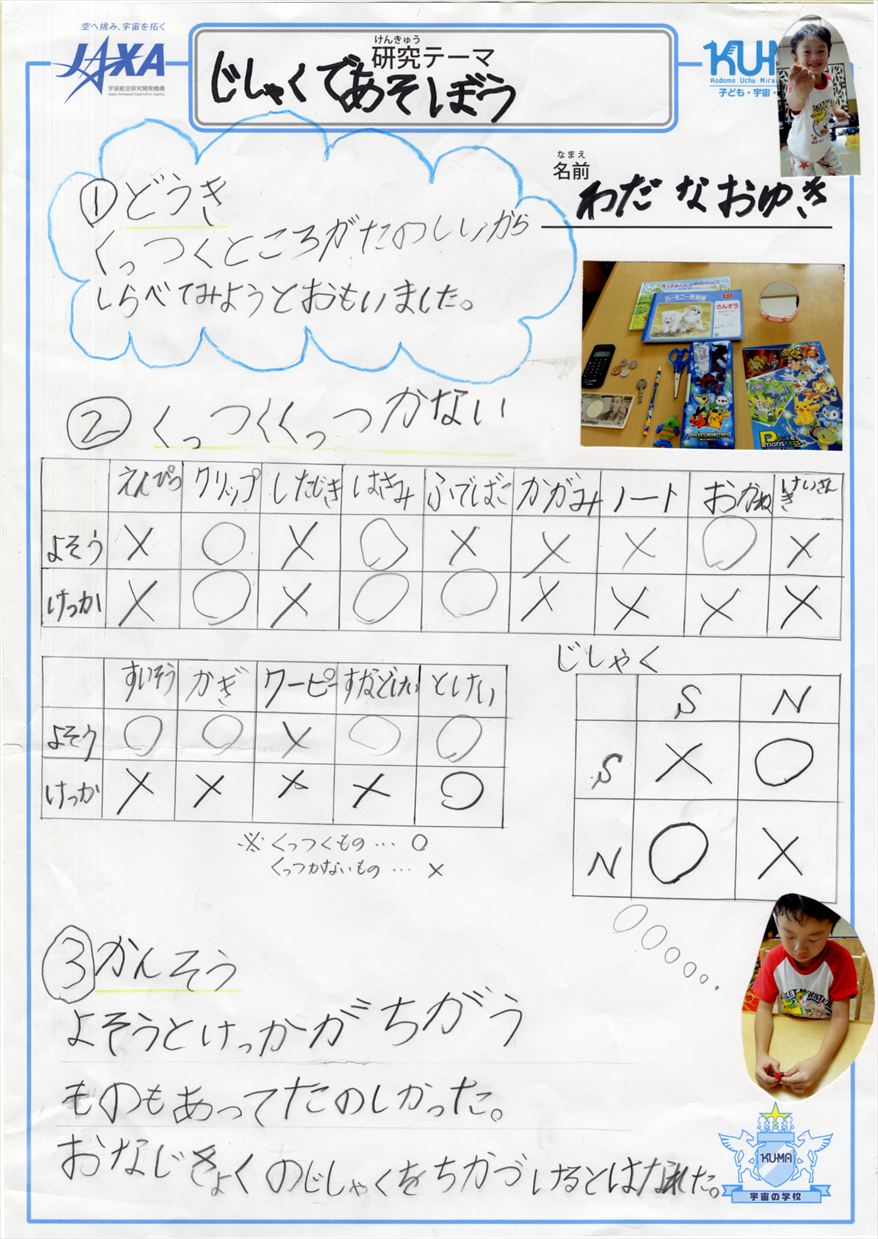 空へ挑み、宇宙を拓く
JAXA
宇宙航空研究開発機構
Japan Aerospace Exploration Agency
けんきゅう
研究テーマ
じしゃくであそぼう
KU
Kodomo Uchu Mira
子ども・宇宙・
なまえ
名前
わだ なおゆき
①どうき
くっつくところがたのしいから
しらべてみようとおもいました。
さんすう
②くっつくくっつかない
えんぴつ クリップ したじき はさみ ふでばこ かがみ ノート おかね けいさんき
よそう × ○ × ○ × × × ○ ×
けっか × ○ × ○ ○ × × × ×
すいそう かぎ クーピー すなどけい とけい
よそう ○ ○ × ○ ○
けっか × × × × ○
※くっつくもの… ○
くっつかないもの… ×
じしゃく
S N
S × ○
N ○ ×
③かんそう
よそうとけっかがちがう
ものもあってたのしかった。
おなじきょくのじしゃくをちかづけるとはなれた。
KUMA
宇宙の学校